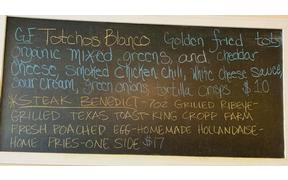 GF Totchos Blanco Golden fried tots,
organic mixed greens, and cheddar
cheese, smoked chicken chili, white cheese sauce,
sour cream, green onions, tortilla crisps $10
*STEAK BENEDICT-7OZ GRILLED RIBEYE-
GRILLED TEXAS TOAST-KING CROPP FARM
FRESH POACHED EGG-HOMEMADE HOLLANDAISE-
HOME FRIES-ONE SIDE $17